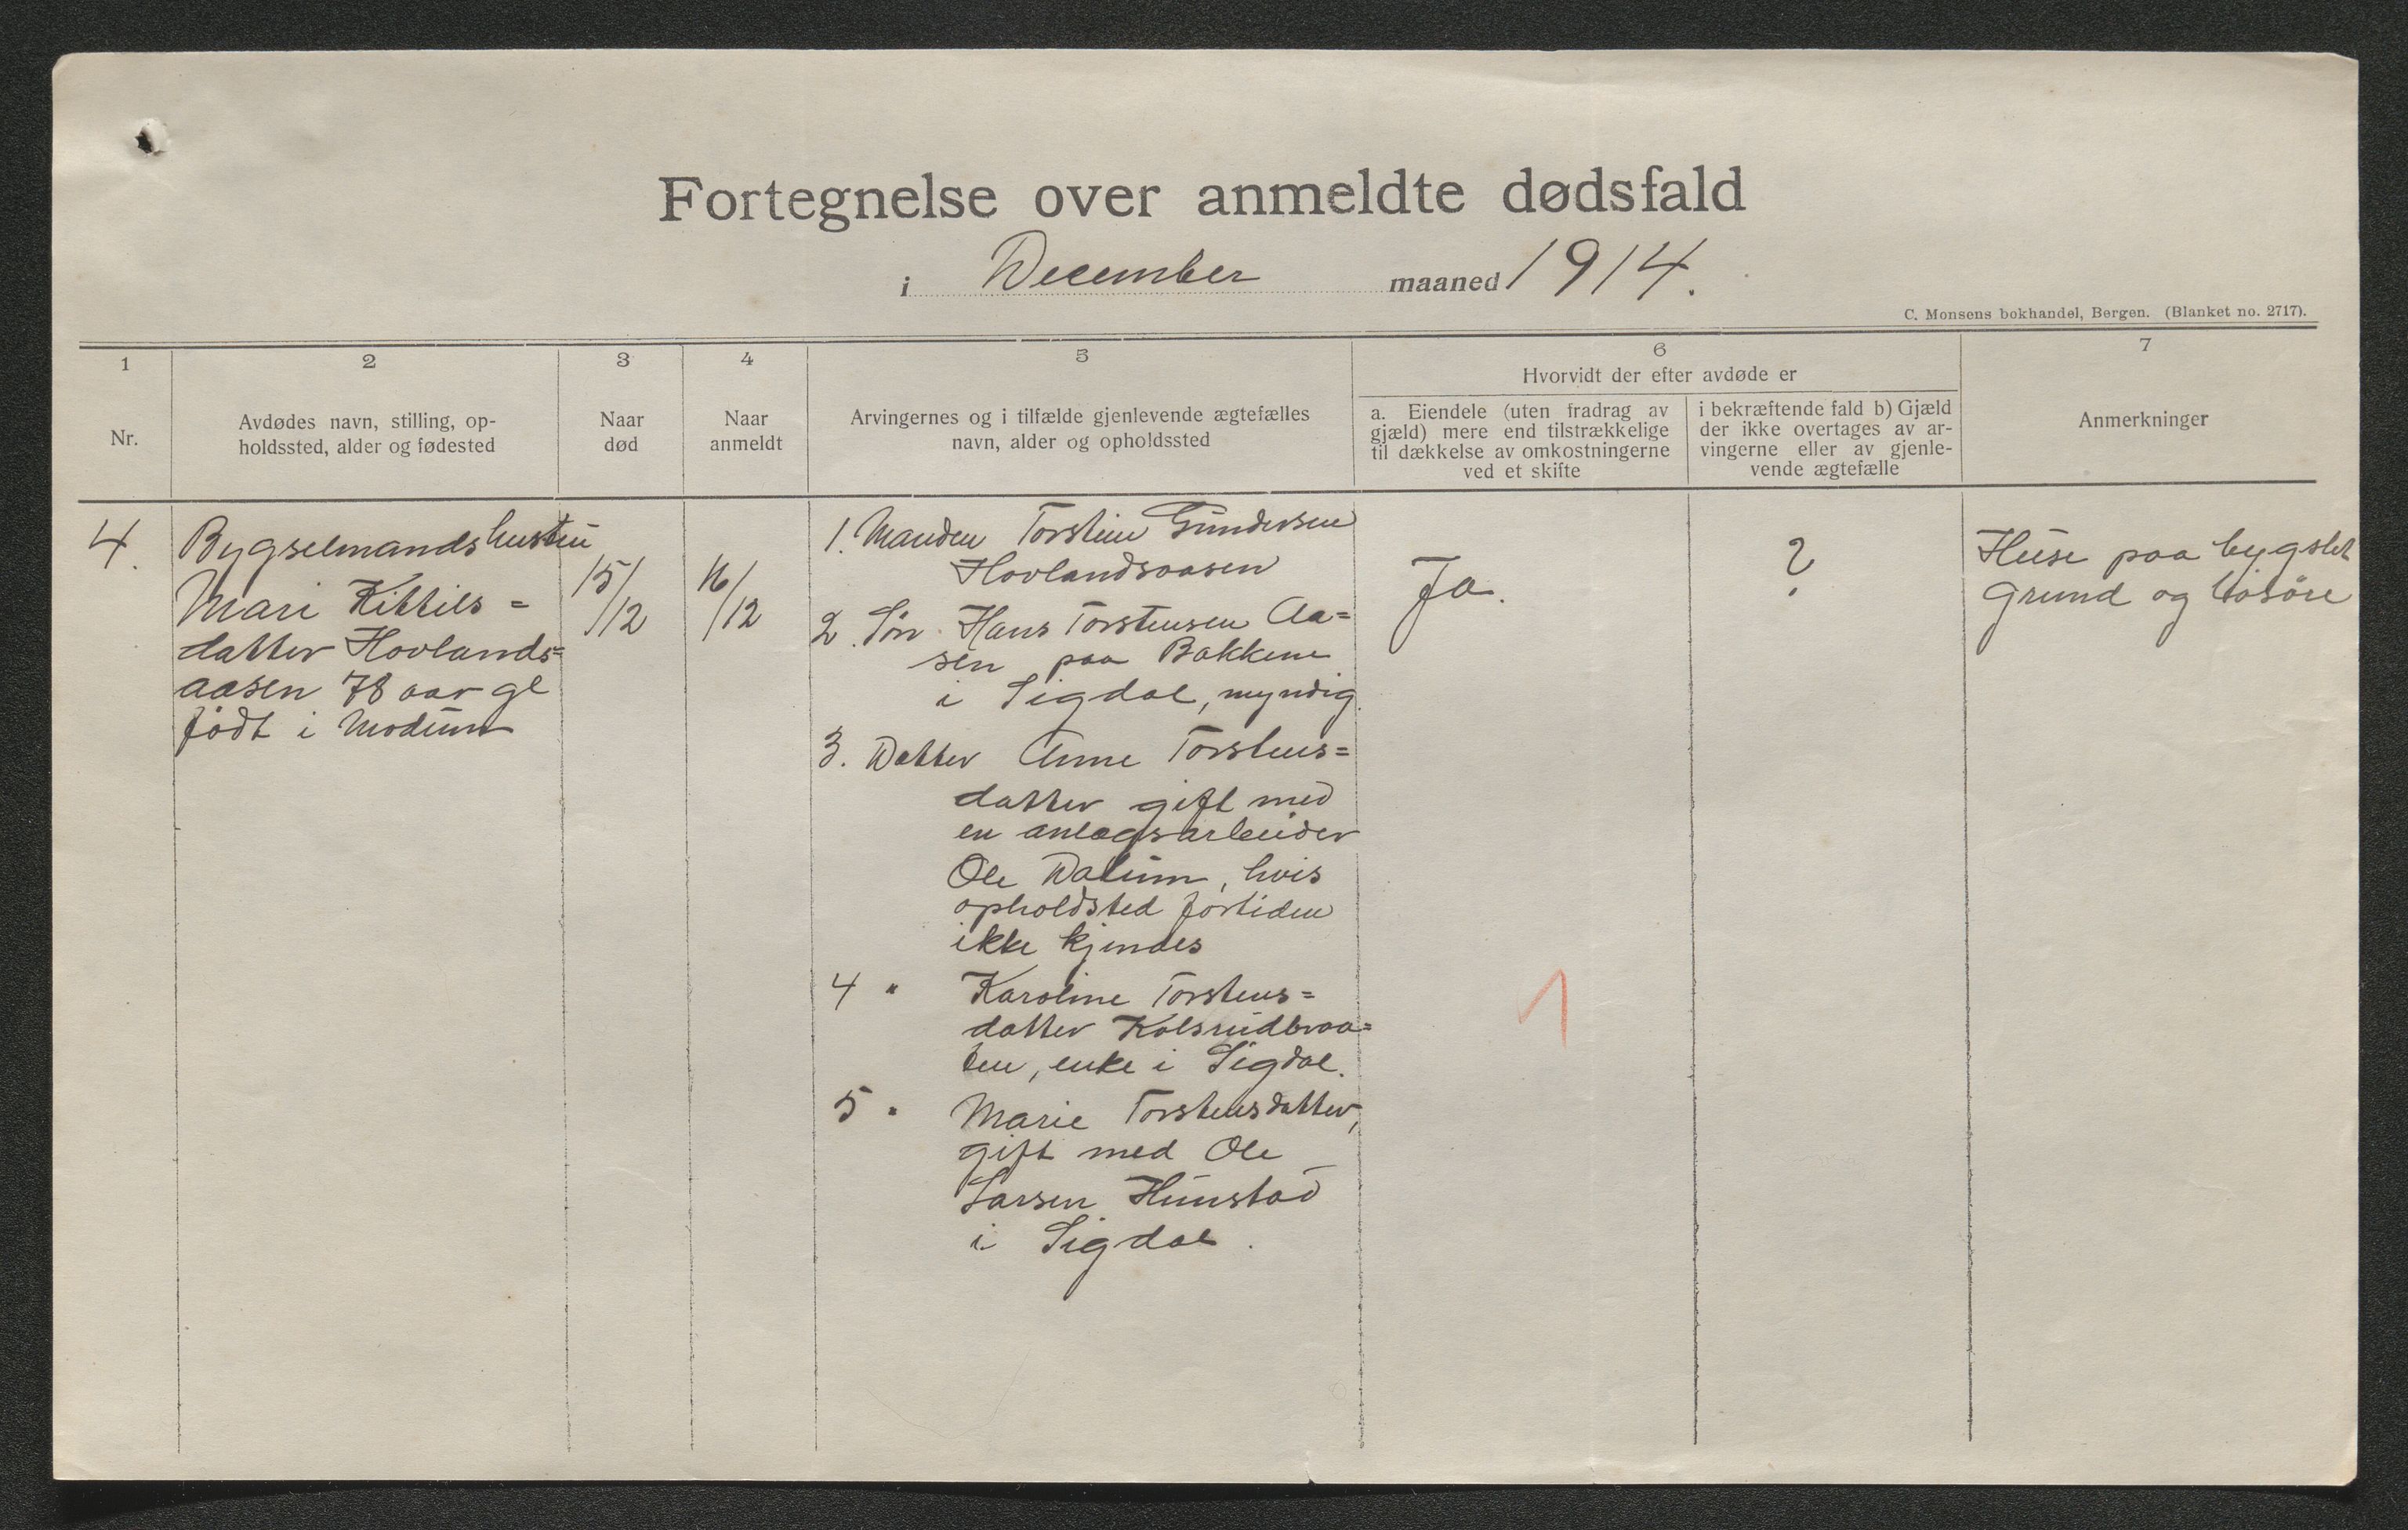 Fortegnelse over anmeldte dødsfald
i December maaned 1914.
C. Monsens bokhandel, Bergen. (Blanket no. 2717).
1
Nr.
2
Avdødes navn, stilling, op-
holdssted, alder og fødested
3
Naar
død
4
Naar
anmeldt
5
Arvingernes og i tilfælde gjenlevende ægtefælles
navn, alder og opholdssted
6
Hvorvidt der efter avdøde er
a. Eiendele (uten fradrag av
gjæld) mere end tilstrækkelige
til dækkelse av omkostningerne
ved et skifte
i bekræftende fald b) Gjæld
der ikke overtages av ar-
vingerne eller av gjenle-
vende ægtefælle
7
Anmerkninger
4.
Bygselmandshustru
Mari Kittils=
datter Hovlands=
aasen 78 aar gl
født i Modum
15/12
16/12
1. Manden Torstein Gundersen
Hovlandsaasen
2. Søn Hans Torstensen Aa=
sen paa Bakkene
i Sigdal, myndig.
3. Datter Anne Torstens=
datter gift med
en anlægsarbeider
Ole Dalum, hvis
opholdsted fortiden
ikke kjendes
4 " Karoline Torstens=
datter Kolsrudbraa=
ten, enke i Sigdal.
5 " Marie Torstensdatter,
gift med Ole
Larsen Hunstad
i Sigdal.
Ja.
?
Huse paa bygslet
grund og løsøre
1